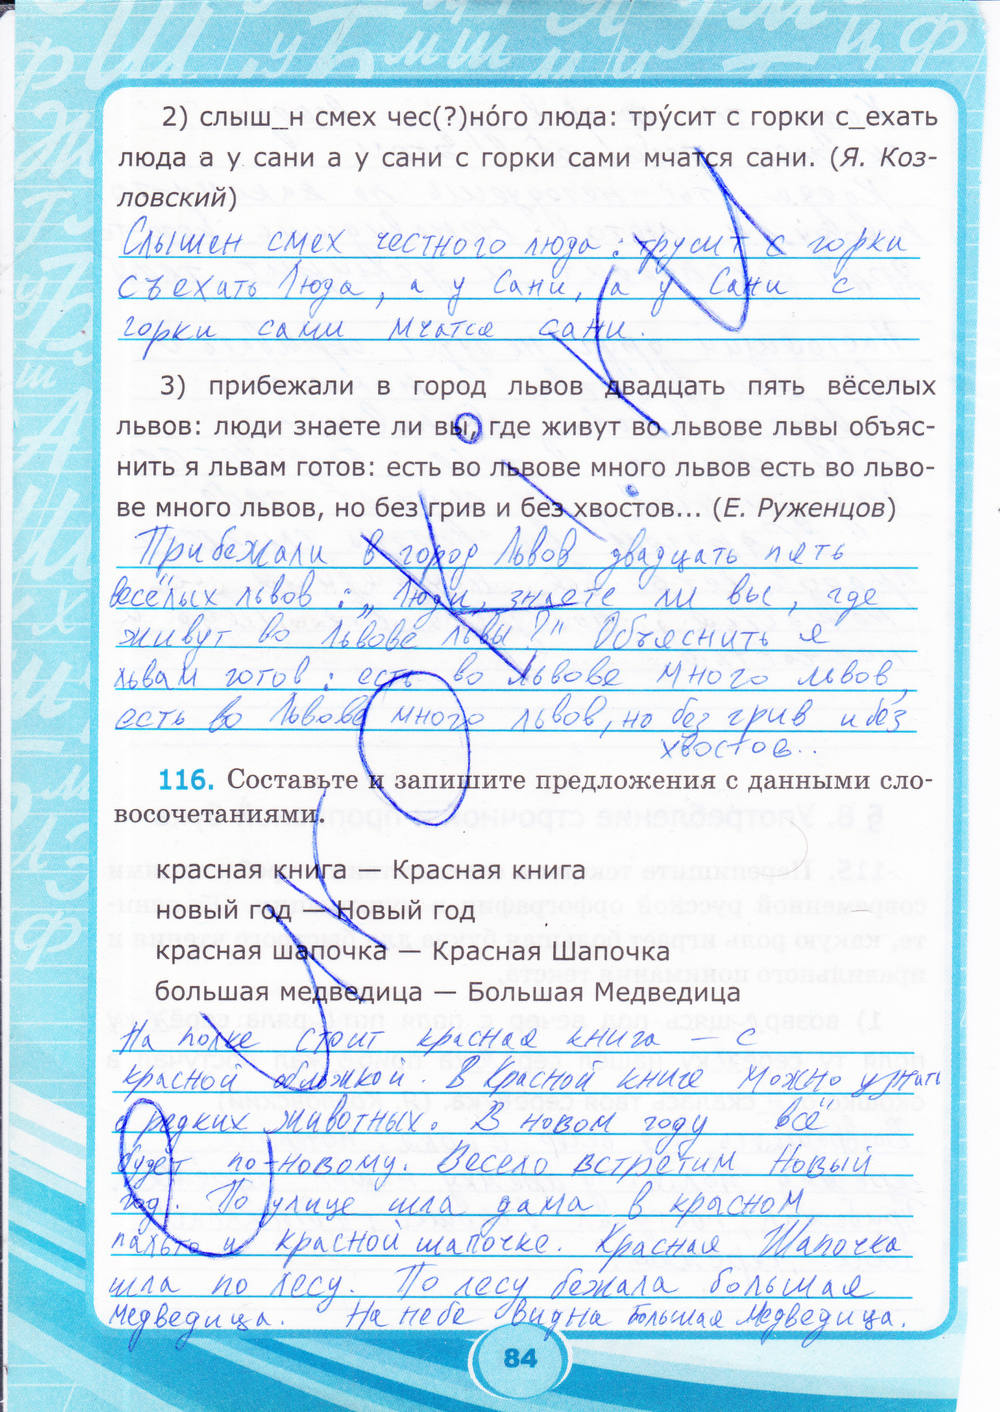 2) слыш_н смех чес(?)но́го люда: тру́сит с горки с_ехать
люда а у сани а у сани с горки сами мчатся сани. (Я. Коз-
ловский)
Слышен смех честного люда: трусит с горки
съехать Люда, а у Сани, а у Сани с
горки сами мчатся сани.
3) прибежали в город львов двадцать пять вёселых
львов: люди знаете ли вы, где живут во львове львы объяс-
нить я львам готов: есть во львове много львов есть во льво-
ве много львов, но без грив и без хвостов... (Е. Руженцов)
Прибежали в город Львов двадцать пять
весёлых львов: „Люди, знаете ли вы, где
живут во Львове львы?" Объяснить я
львам готов: есть во Львове много львов,
есть во Львове много львов, но без грив и без
хвостов...
116. Составьте и запишите предложения с данными сло-
восочетаниями.
красная книга — Красная книга
новый год — Новый год
красная шапочка — Красная Шапочка
большая медведица — Большая Медведица
На полке стоит красная книга – с
красной обложкой. В Красной книге можно узнать
о редких животных. В новом году всё
будет по-новому. Весело встретим Новый
год. По улице шла дама в красном
пальто и красной шапочке. Красная Шапочка
шла по лесу. По лесу бежала большая
медведица. На небе видна Большая Медведица.
84